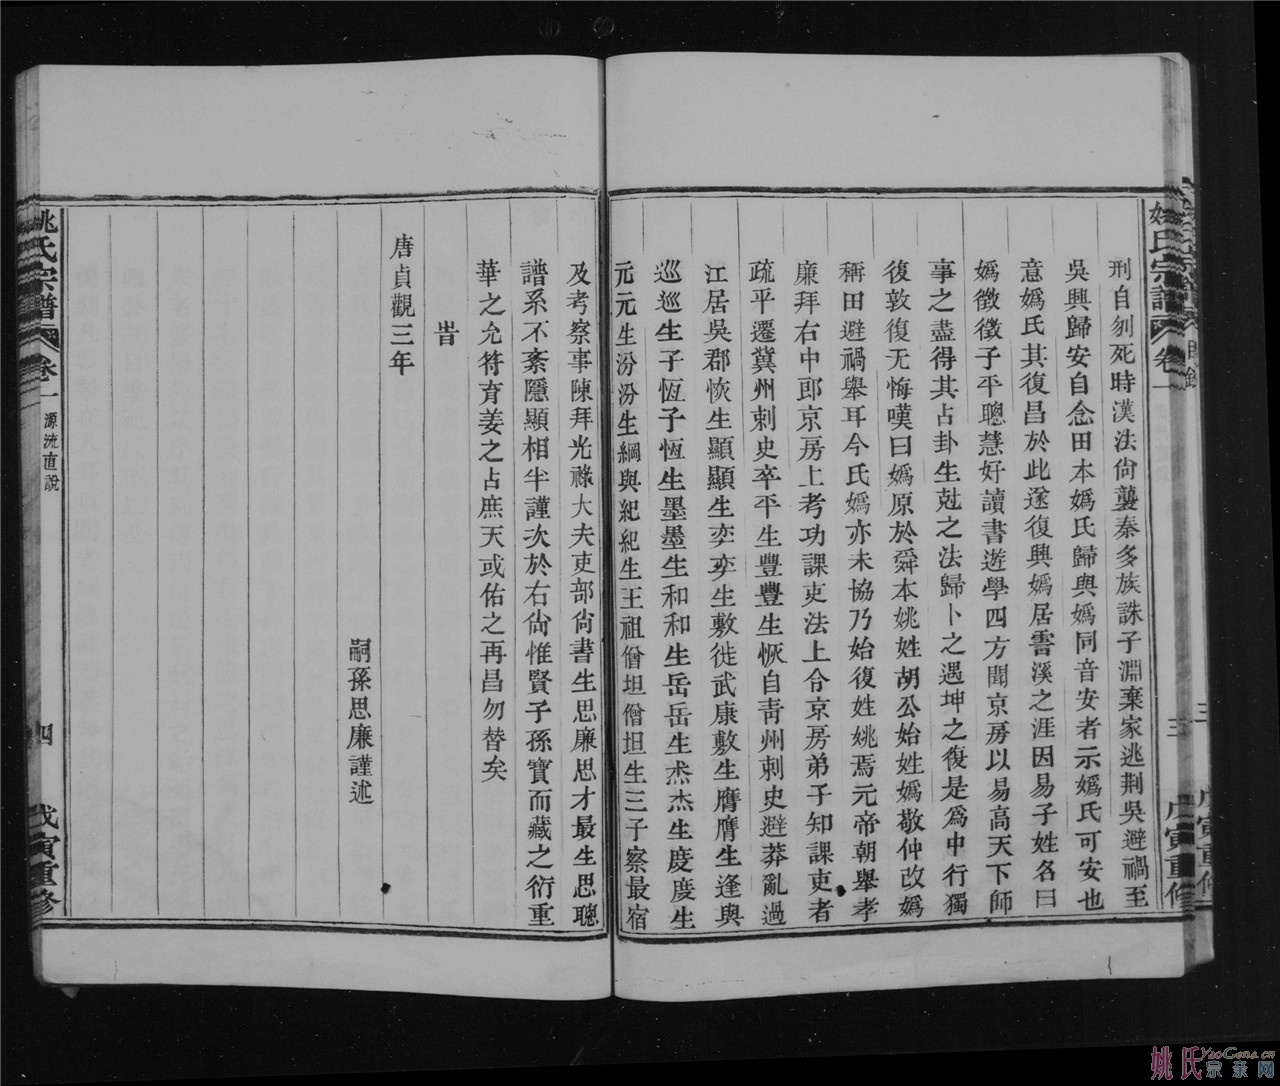 姚氏宗譜 卷一 三 戊寅重修
刑自刎死時漢法尙襲秦多族誅子淵棄家逃荆吳避禍至
吳興歸安自念田本嬀氏歸與嬀同音安者示嬀氏可安也
意嬀氏其復昌於此遂復興嬀居霅溪之涯因易子姓名曰
嬀徵徵子平聰慧好讀書遊學四方聞京房以易高天下師
事之盡得其占卦生尅之法歸卜之遇坤之復是爲中行獨
復敦復无悔嘆曰嬀原於舜本姚姓胡公始姓嬀敬仲改嬀
稱田避禍舉耳今氏嬀亦未協乃始復姓姚焉元帝朝舉孝
廉拜右中郎京房上考功課吏法上令京房弟子知課吏者
疏平遷冀州刺史卒平生豐豐生恢自靑州刺史避莽亂過
江居吳郡恢生顯顯生奕奕生敷徙武康敷生膺膺生逢與
巡巡生子恆子恆生墨墨生和和生岳岳生杰杰生度度生
元元生汾汾生綱與紀紀生王祖僧坦僧坦生三子察最宿
及考察事陳拜光祿大夫吏部尙書生思廉思才最生思聰
譜系不紊隱顯相半謹次於右尙惟賢子孫寶而藏之衍重
華之允符育姜之占庶天或佑之再昌勿替矣
旹
唐貞觀三年
嗣孫思廉謹述
姚氏宗譜 卷一 源流直說 四 戊寅重修
姚氏 YaoGens.cn
宗亲网